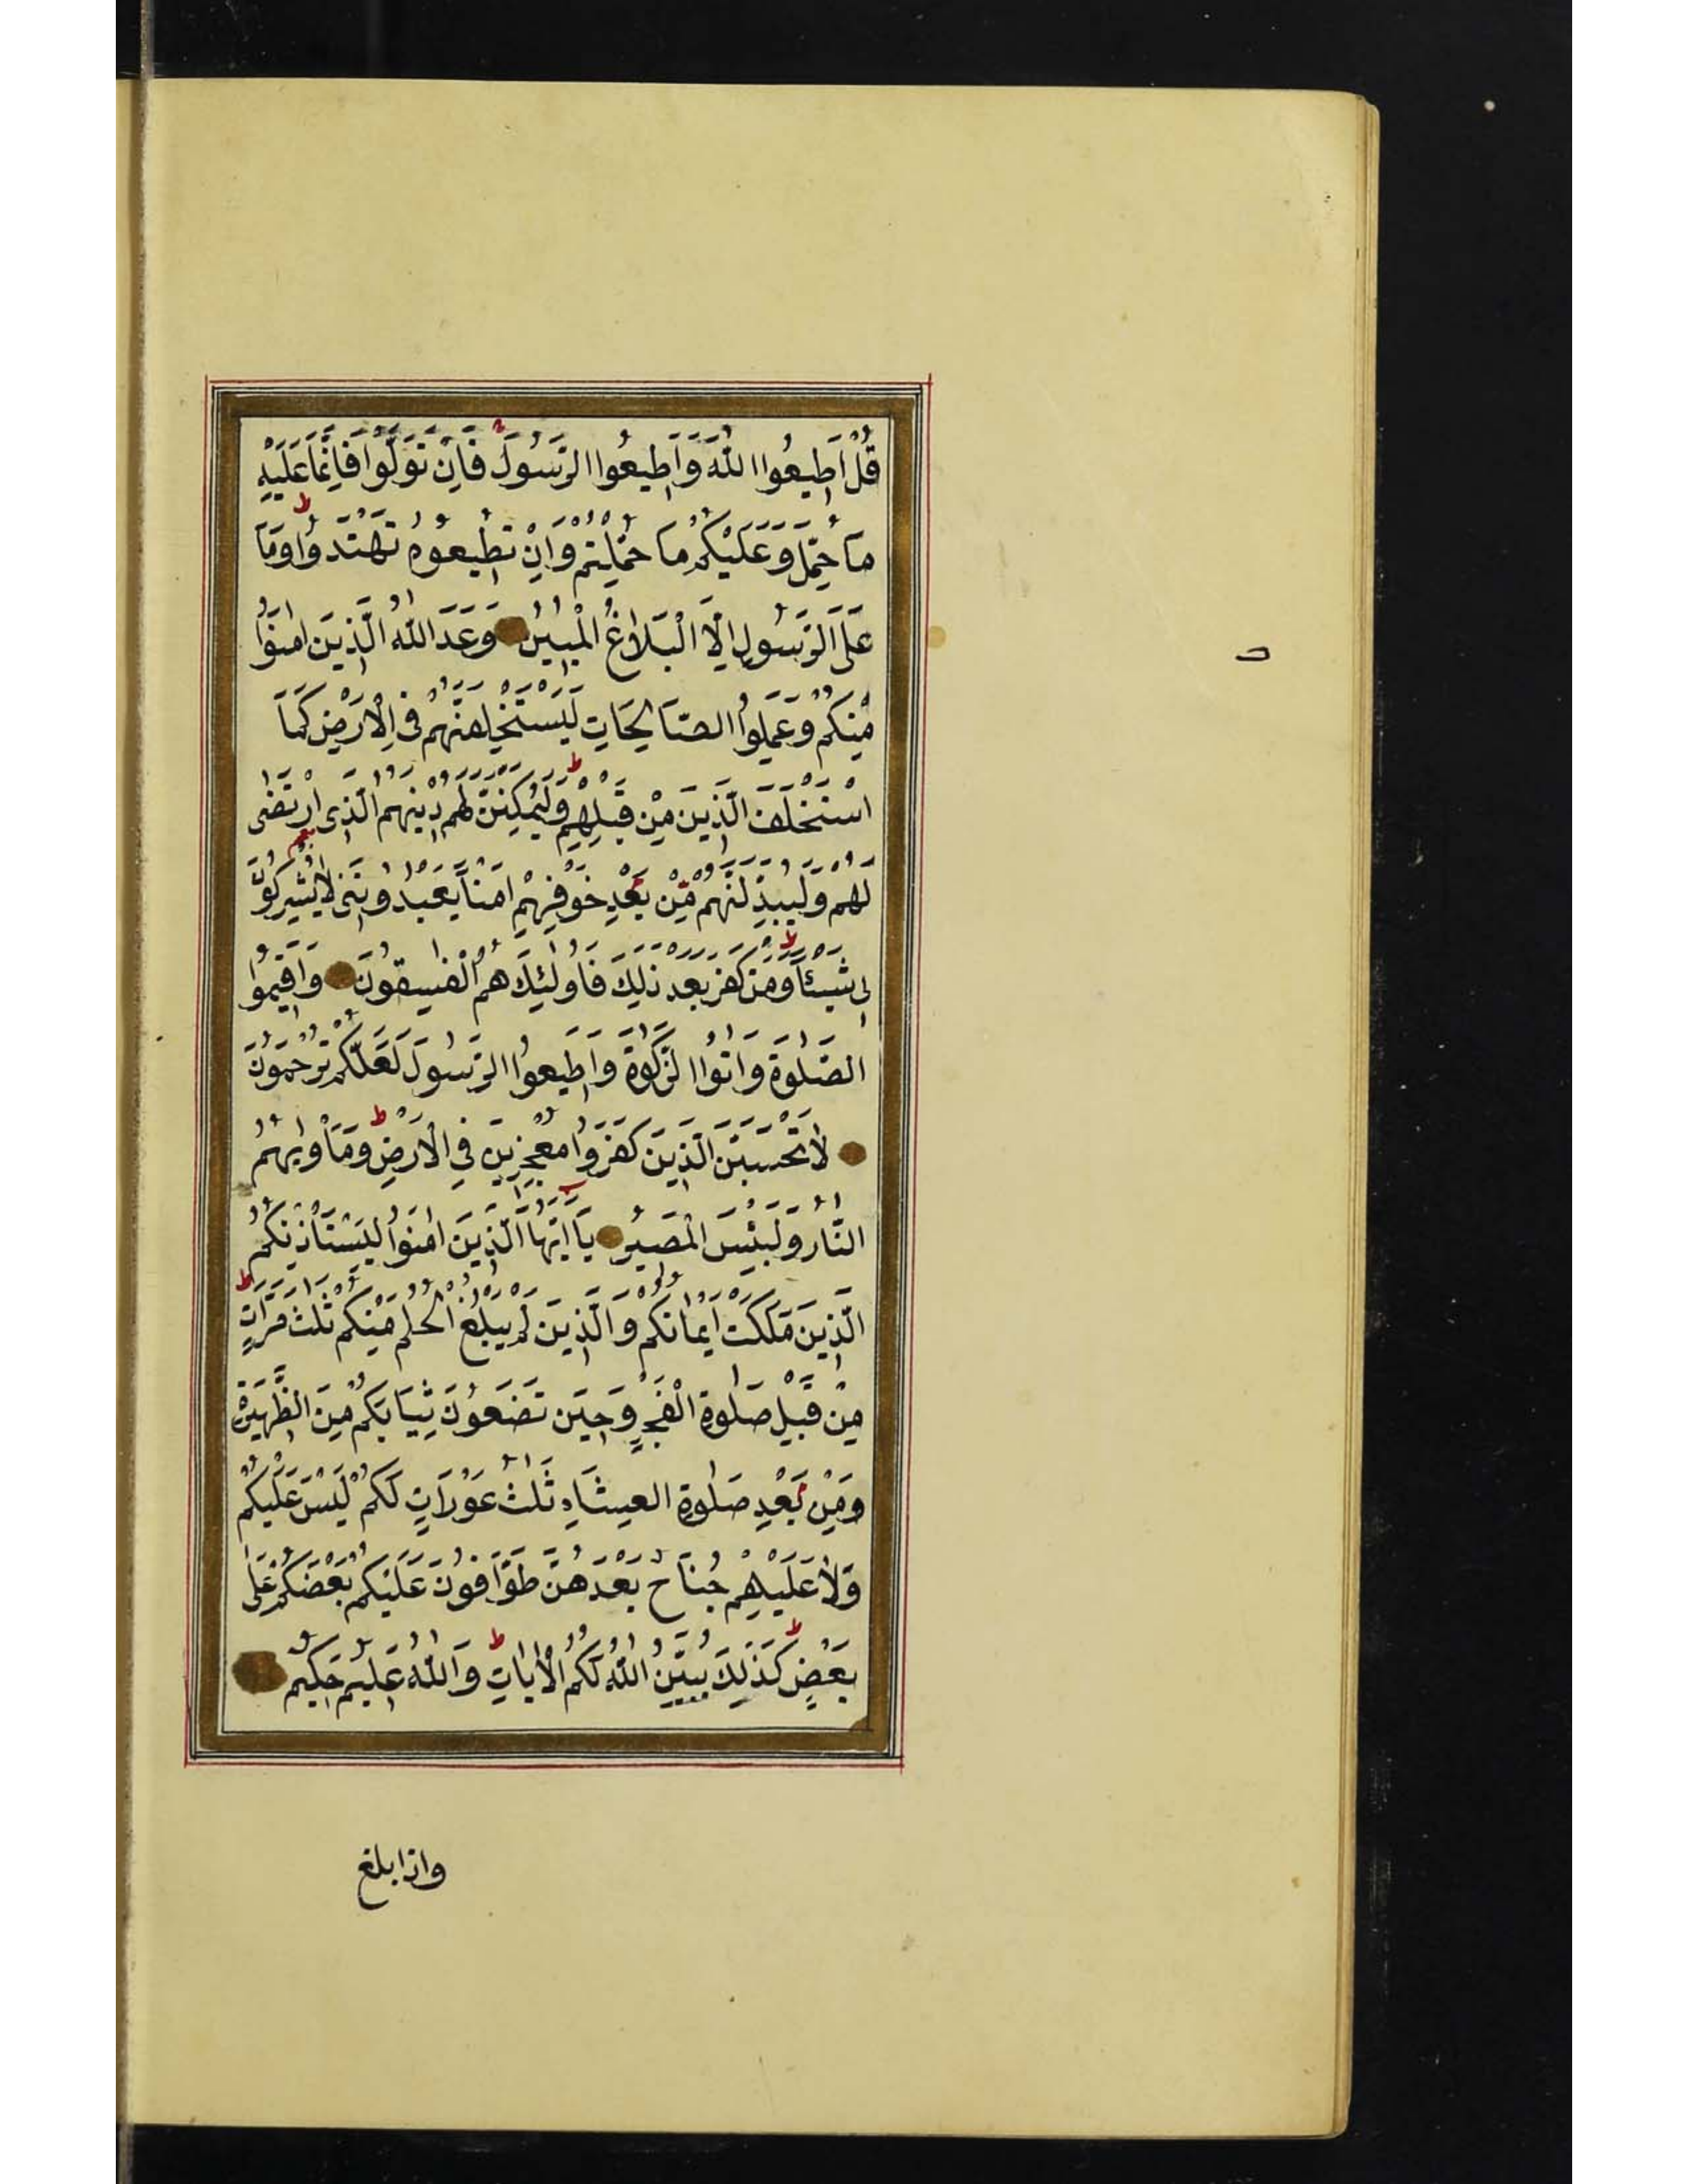 قُلْ اَطِيعُوا اللّٰهَ وَاَطِيعُوا الرَّسُولَ فَاِنْ تَوَلَّوْا فَاِنَّمَا عَلَيْهِ
مَا حُمِّلَ وَعَلَيْكُمْ مَا حُمِّلْتُمْ وَاِنْ تُطِيعُوهُ تَهْتَدُوا وَمَا
عَلَى الرَّسُولِ اِلَّا الْبَلَاغُ الْمُبِينُ وَعَدَ اللّٰهُ الَّذِينَ اٰمَنُوا
مِنْكُمْ وَعَمِلُوا الصَّالِحَاتِ لَيَسْتَخْلِفَنَّهُمْ فِي الْاَرْضِ كَمَا
اسْتَخْلَفَ الَّذِينَ مِنْ قَبْلِهِمْ وَلَيُمَكِّنَنَّ لَهُمْ دِينَهُمُ الَّذِي ارْتَضٰى
لَهُمْ وَلَيُبَدِّلَنَّهُمْ مِنْ بَعْدِ خَوْفِهِمْ اَمْنًا يَعْبُدُونَنِي لَا يُشْرِكُونَ
بِي شَيْئًا وَمَنْ كَفَرَ بَعْدَ ذٰلِكَ فَاُولٰئِكَ هُمُ الْفٰسِقُونَ وَاَقِيمُوا
الصَّلٰوةَ وَاٰتُوا الزَّكٰوةَ وَاَطِيعُوا الرَّسُولَ لَعَلَّكُمْ تُرْحَمُونَ
لَا تَحْسَبَنَّ الَّذِينَ كَفَرُوا مُعْجِزِينَ فِي الْاَرْضِ وَمَاْوٰيهُمُ
النَّارُ وَلَبِئْسَ الْمَصِيرُ يَا اَيُّهَا الَّذِينَ اٰمَنُوا لِيَسْتَاْذِنْكُمُ
الَّذِينَ مَلَكَتْ اَيْمَانُكُمْ وَالَّذِينَ لَمْ يَبْلُغُوا الْحُلُمَ مِنْكُمْ ثَلٰثَ مَرَّاتٍ
مِنْ قَبْلِ صَلٰوةِ الْفَجْرِ وَحِينَ تَضَعُونَ ثِيَابَكُمْ مِنَ الظَّهِيرَةِ
وَمِنْ بَعْدِ صَلٰوةِ الْعِشَاءِ ثَلٰثُ عَوْرَاتٍ لَكُمْ لَيْسَ عَلَيْكُمْ
وَلَا عَلَيْهِمْ جُنَاحٌ بَعْدَهُنَّ طَوَّافُونَ عَلَيْكُمْ بَعْضُكُمْ عَلٰى
بَعْضٍ كَذٰلِكَ يُبَيِّنُ اللّٰهُ لَكُمُ الْاٰيَاتِ وَاللّٰهُ عَلِيمٌ حَكِيمٌ
واذا بلغ